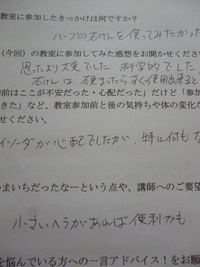 教室に参加したきっかけは何ですか？
ハーブの石けんを使ってみたかった
（今回）の教室に参加してみた感想をお聞かせくださ
思ったより大変でした 科学的でした
石けんは 固まったらすぐ使用出来ると
前はここが不安だった・心配だった」だけど「参
きた」など、教室参加前と後の気持ちや体の変化が
せください。
イソーダが心配でしたが、特に何もな
まいちだったなーという点や、講師へのご要望
小さいヘラがあれば便利かも。
を悩んでいる方への一言アドバイス！をお願